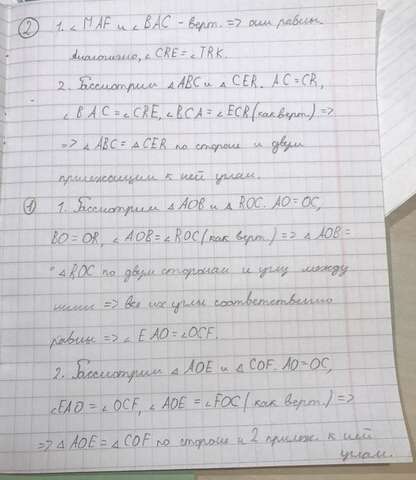 ② 1. ∠MAF и ∠BAC - верт. => они равны.
Аналогично, ∠CRE = ∠TRK.
2. Рассмотрим △ABC и △CER. AC=CR,
∠BAC=∠CRE, ∠BCA=∠ECR (как верт.) =>
=> △ABC = △CER по стороне и двум
прилежащим к ней углам.
① 1. Рассмотрим △AOB и △ROC. AO=OC,
BO=OR, ∠AOB=∠ROC (как верт.) => △AOB =
= △ROC по двум сторонам и углу между
ними => все их углы соответственно
равны => ∠EAO=∠OCF.
2. Рассмотрим △AOE и △COF. AO=OC,
∠EAO = ∠OCF, ∠AOE = ∠FOC (как верт.) =>
=> △AOE = △COF по стороне и 2 прилеж. к ней
углам.